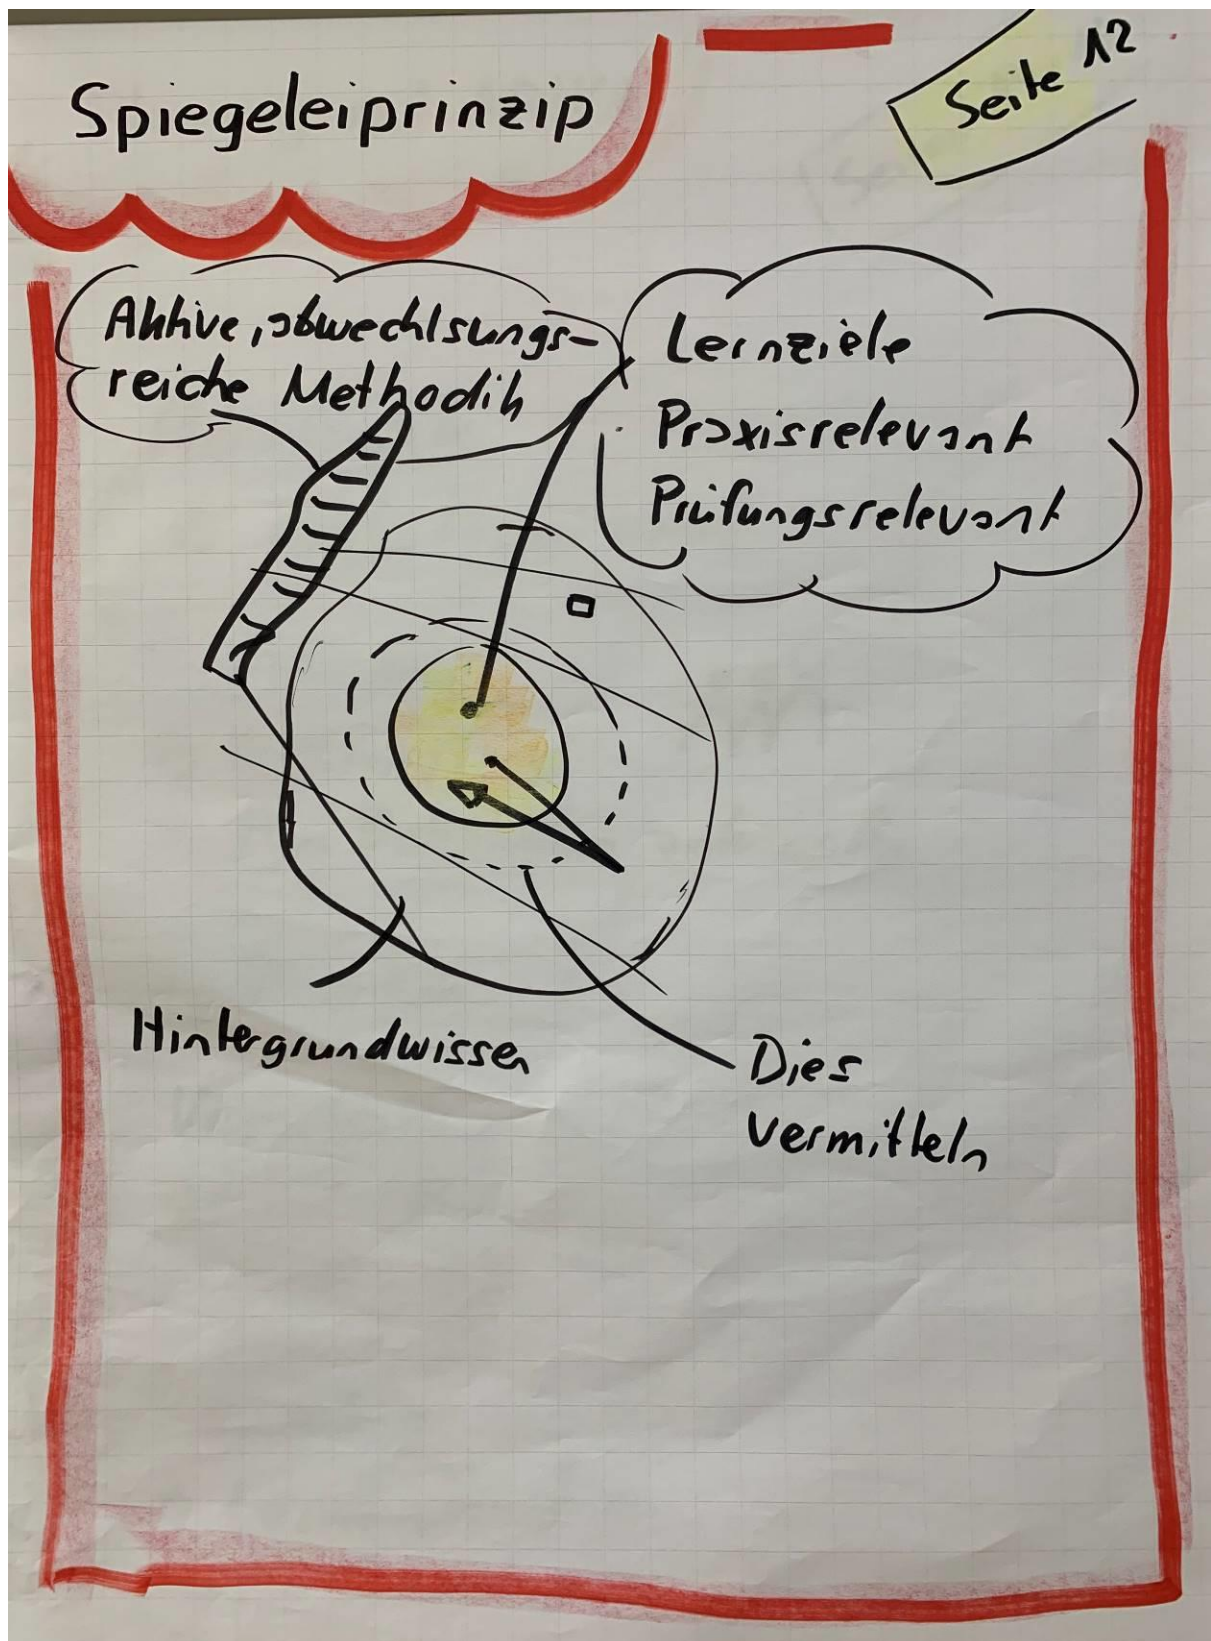 Spiegeleiprinzip
Seite 12
Aktive, abwechlsungs-
reiche Methodik
Lernziele
Praxisrelevant
Prüfungsrelevant
Hintergrundwissen
Dies
vermitteln